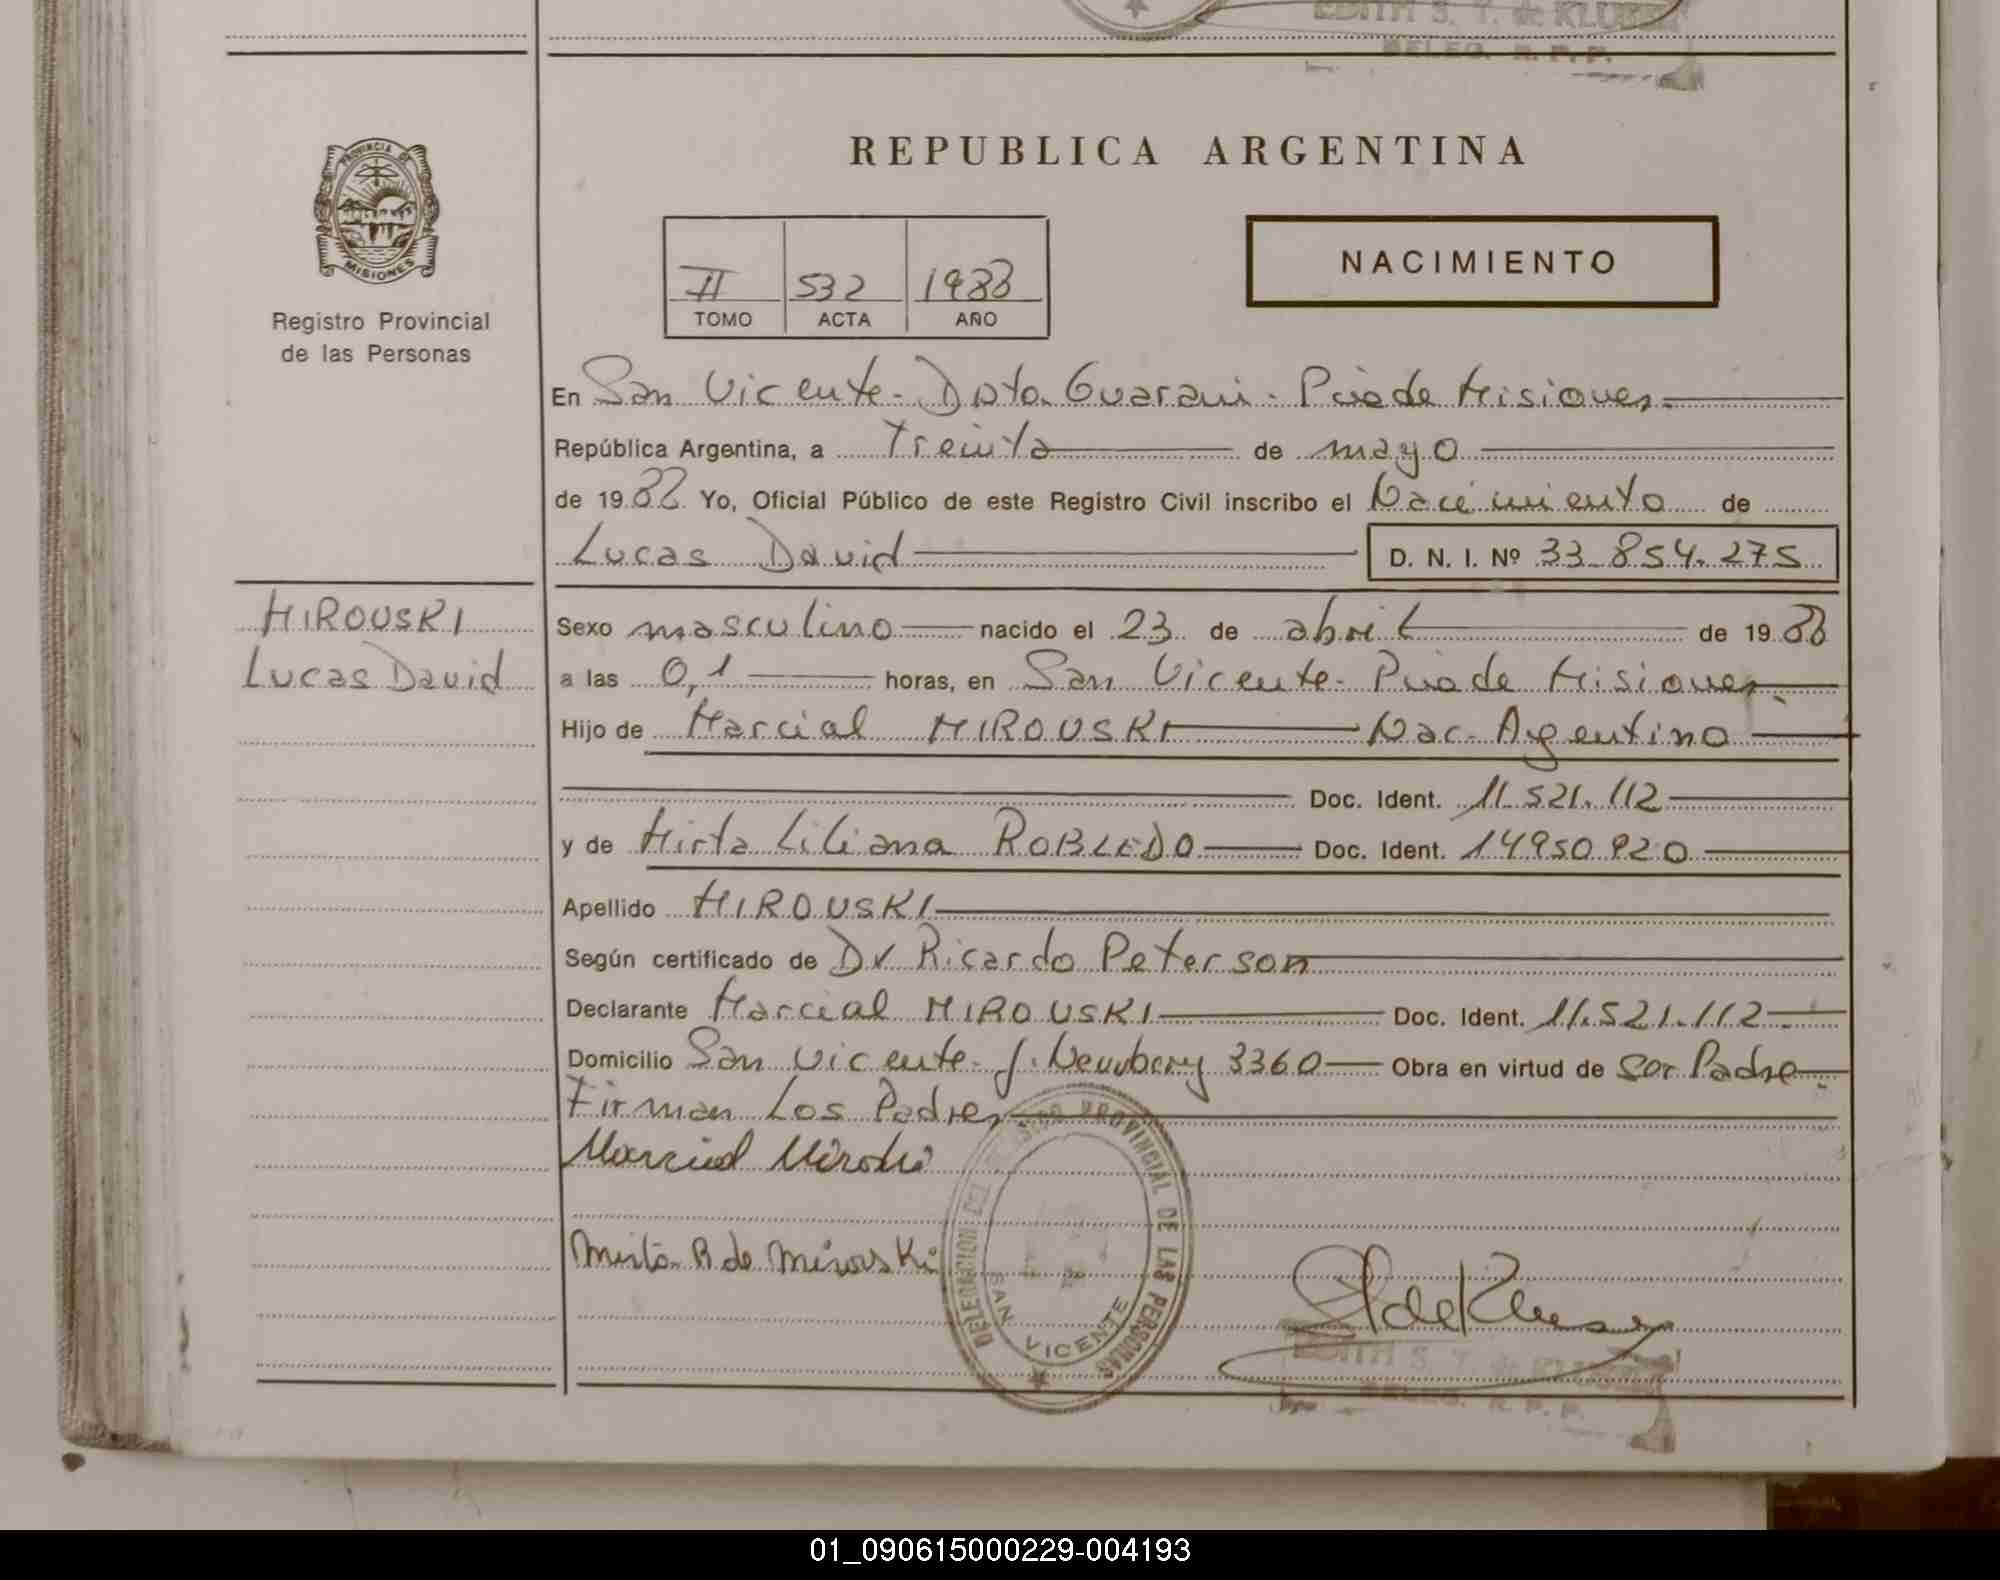 EDITH S. T. de KLUSEN
DELEG. R. P. P.
PROVINCIA DE
MISIONES
Registro Provincial
de las Personas
REPUBLICA ARGENTINA
II 532 1988
TOMO ACTA AÑO
NACIMIENTO
En San Vicente - Dpto. Guarani - Pcia de Misiones.
República Argentina, a Treinta de mayo
de 1988 Yo, Oficial Público de este Registro Civil inscribo el Nacimiento de
Lucas David D. N. I. Nº 33.854.275
MIROUSKI
Lucas David
Sexo masculino nacido el 23 de abril de 1988
a las 0,1 horas, en San Vicente - Pcia de Misiones.
Hijo de Marcial MIROUSKI Nac. Argentino
Doc. Ident. 11.521.112
y de Mirta Liliana ROBLEDO Doc. Ident. 14950920
Apellido MIROUSKI
Según certificado de Dr Ricardo Peterson
Declarante Marcial MIROUSKI Doc. Ident. 11.521.112
Domicilio San Vicente - J. Newbery 3360 Obra en virtud de ser Padre
Firman Los Padres
Marcial
Mirta R de Mirouski
DELEGACION DEL REGISTRO PROVINCIAL DE LAS PERSONAS
SAN VICENTE
EDITH S. T. de KLUSEN
DELEG. R. P. P.
01_090615000229-004193